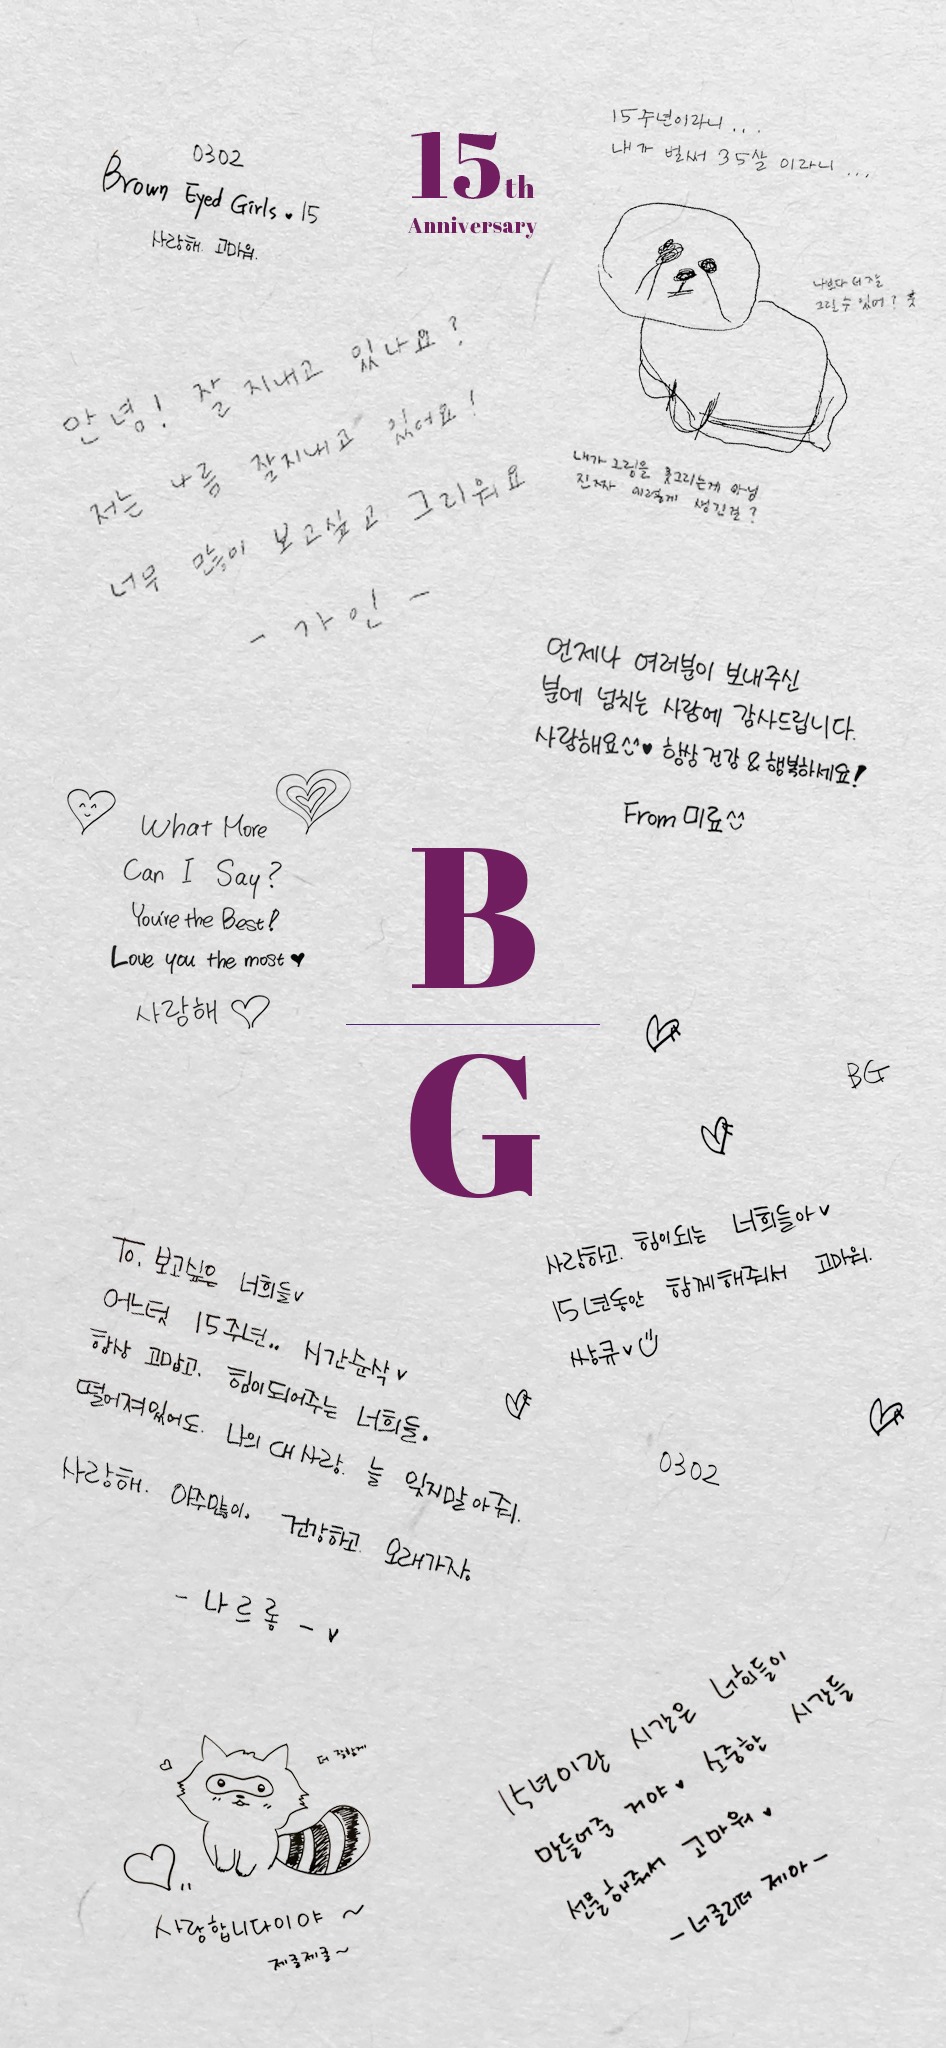 0302
Brown Eyed Girls ♥ 15
사랑해. 고마워.
15th
Anniversary
15주년이라니...
내가 벌써 35살 이라니...
나보다 더 잘
그릴수 있어? 훗
내가 그림을 못그리는게 아님
진짜 이렇게 생긴걸?
안녕! 잘 지내고 있나요?
저는 나름 잘지내고 있어요!
너무 많이 보고싶고 그리워요
- 가인 -
언제나 여러분이 보내주신
분에 넘치는 사랑에 감사드립니다.
사랑해요^^♥ 항상 건강 & 행복하세요!
From 미료^^
What More
Can I Say?
You're the Best!
Love you the most ♥
사랑해 ♡
B
G
BG
To. 보고싶은 너희들v
어느덧 15주년.. 시간순삭v
항상 고맙고. 힘이되어주는 너희들.
떨어져있어도. 나의 대사랑. 늘 잊지말아줘.
사랑해. 아주많이. 건강하고. 오래가자.
- 나르롷 - v
사랑하고. 힘이되는 너희들아v
15년동안 함께해줘서 고마워.
쌍큐v
0302
더 잘할게
사랑합니다이야 ~
제글제글~
15년이란 시간은 너희들이
만들어준 거야♥ 소중한 시간들
선물해줘서 고마워♥
- 너글리더 제아 -